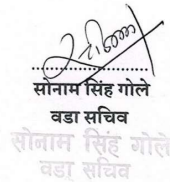 सोनाम सिंह गोले
वडा सचिव
सोनाम सिंह गोले
वडा सचिव